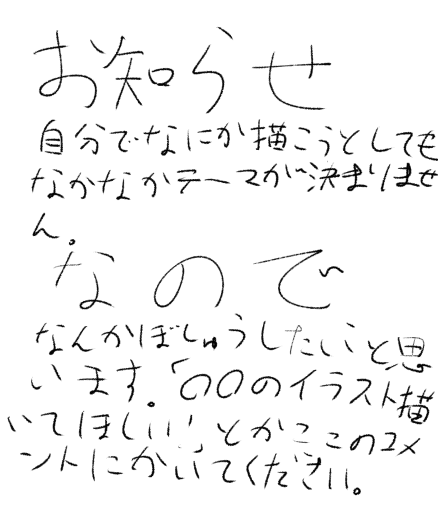 お知らせ
自分でなにか描こうとしても
なかなかテーマが決まりませ
ん。
なので
なんかぼしゅうしたいと思
います。「〇〇のイラスト描
いてほしい!」とかここのコメ
ントにかいてください。